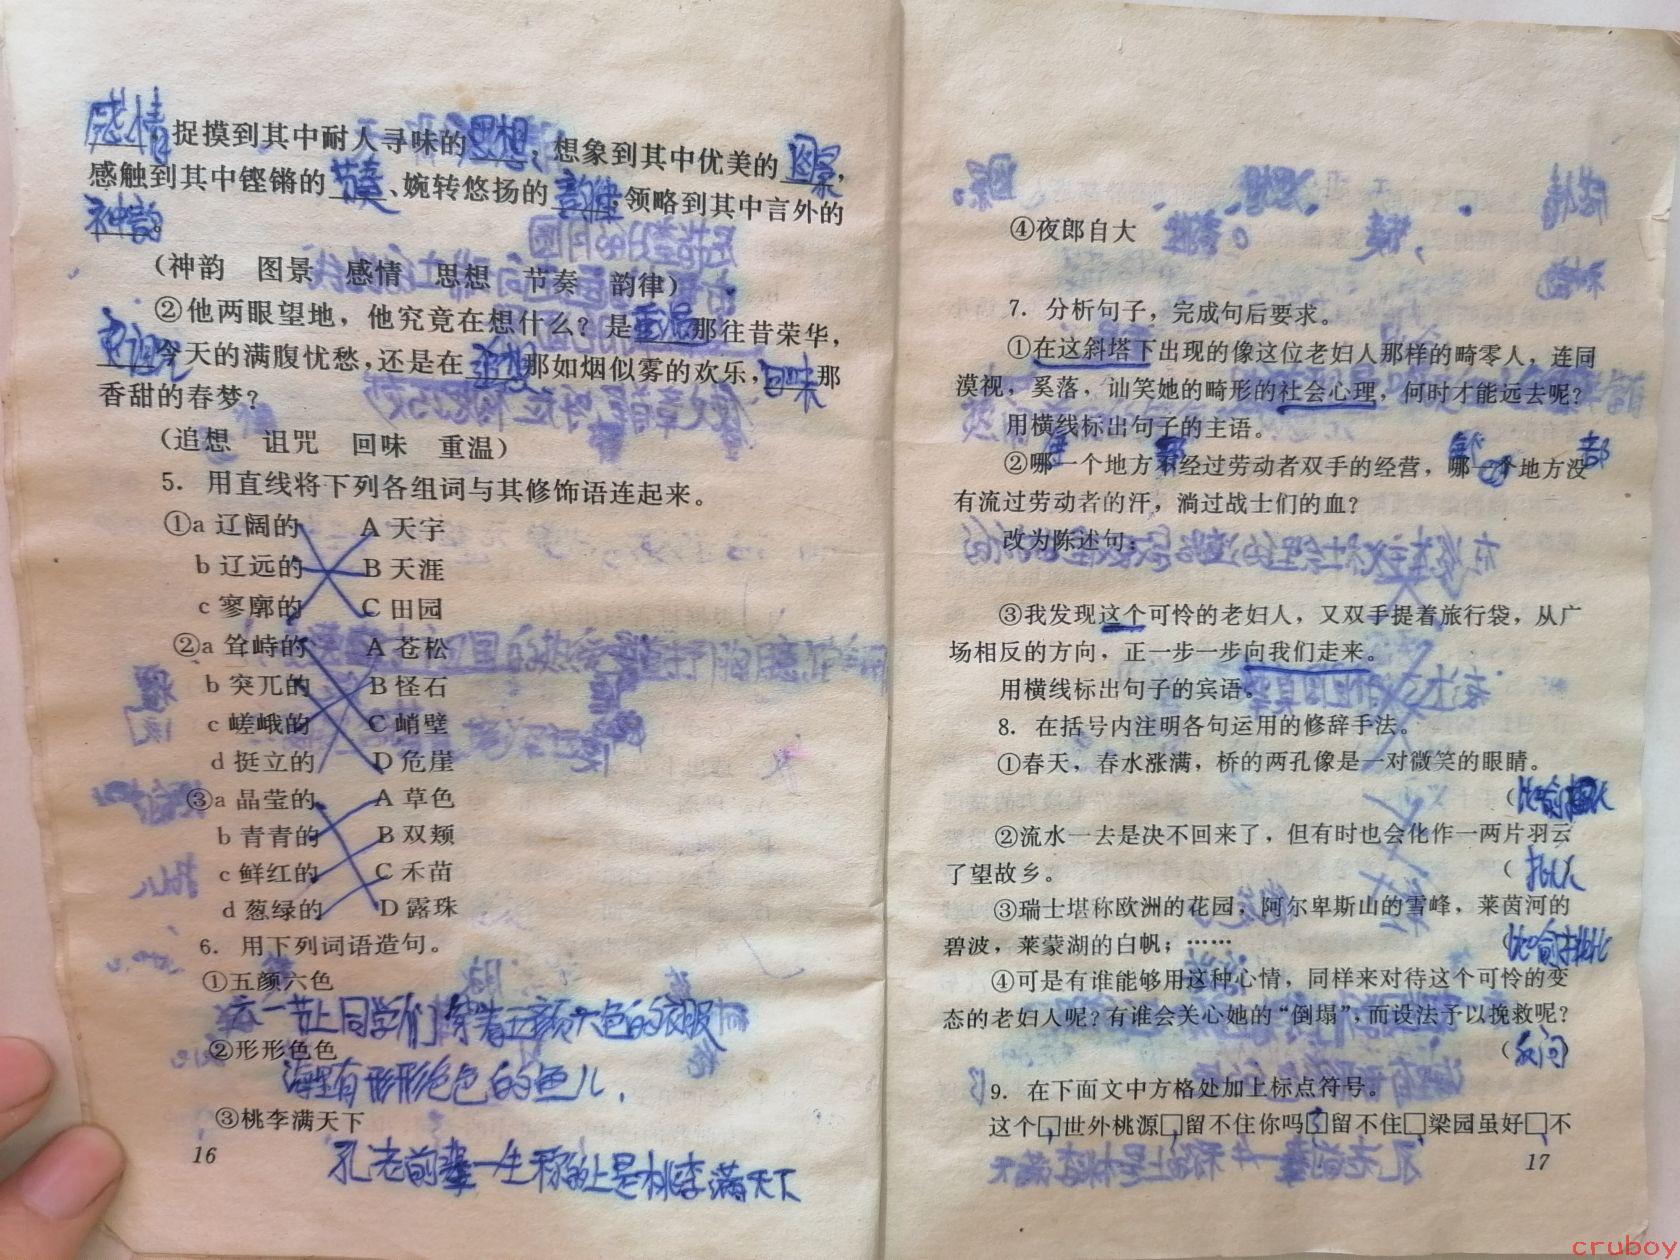 感情，捉摸到其中耐人寻味的思想，想象到其中优美的图景，
感触到其中铿锵的节奏、婉转悠扬的韵律；领略到其中言外的
神韵。
（神韵 图景 感情 思想 节奏 韵律）
②他两眼望地，他究竟在想什么？是重温那往昔荣华，
诅咒今天的满腹忧愁，还是在追想那如烟似雾的欢乐，回味那
香甜的春梦？
（追想 诅咒 回味 重温）
5．用直线将下列各组词与其修饰语连起来。
①a 辽阔的 A 天宇
b 辽远的 B 天涯
c 寥廓的 C 田园
②a 耸峙的 A 苍松
b 突兀的 B 怪石
c 嵯峨的 C 峭壁
d 挺立的 D 危崖
③a 晶莹的 A 草色
b 青青的 B 双颊
c 鲜红的 C 禾苗
d 葱绿的 D 露珠
6．用下列词语造句。
①五颜六色
六一节上同学们穿着五颜六色的衣服
②形形色色
海里有形形色色的鱼儿．
③桃李满天下
孔老前辈一生称的上是桃李满天下
16
④夜郎自大
7．分析句子，完成句后要求。
①在这斜塔下出现的像这位老妇人那样的畸零人，连同
漠视，奚落，讪笑她的畸形的社会心理，何时才能远去呢？
用横线标出句子的主语。
②哪一个地方不经过劳动者双手的经营，哪一个地方没
有流过劳动者的汗，淌过战士们的血？
改为陈述句：
③我发现这个可怜的老妇人，又双手提着旅行袋，从广
场相反的方向，正一步一步向我们走来。
用横线标出句子的宾语。
8．在括号内注明各句运用的修辞手法。
①春天，春水涨满，桥的两孔像是一对微笑的眼睛。
（比喻拟人
②流水一去是决不回来了，但有时也会化作一两片羽云
了望故乡。（拟人
③瑞士堪称欧洲的花园，阿尔卑斯山的雪峰，莱茵河的
碧波，莱蒙湖的白帆；……（比喻排比
④可是有谁能够用这种心情，同样来对待这个可怜的变
态的老妇人呢？有谁会关心她的“倒塌”，而设法予以挽救呢？
（反问）
9．在下面文中方格处加上标点符号。
这个□世外桃源□留不住你吗□留不住□梁园虽好□不
17
cruboy